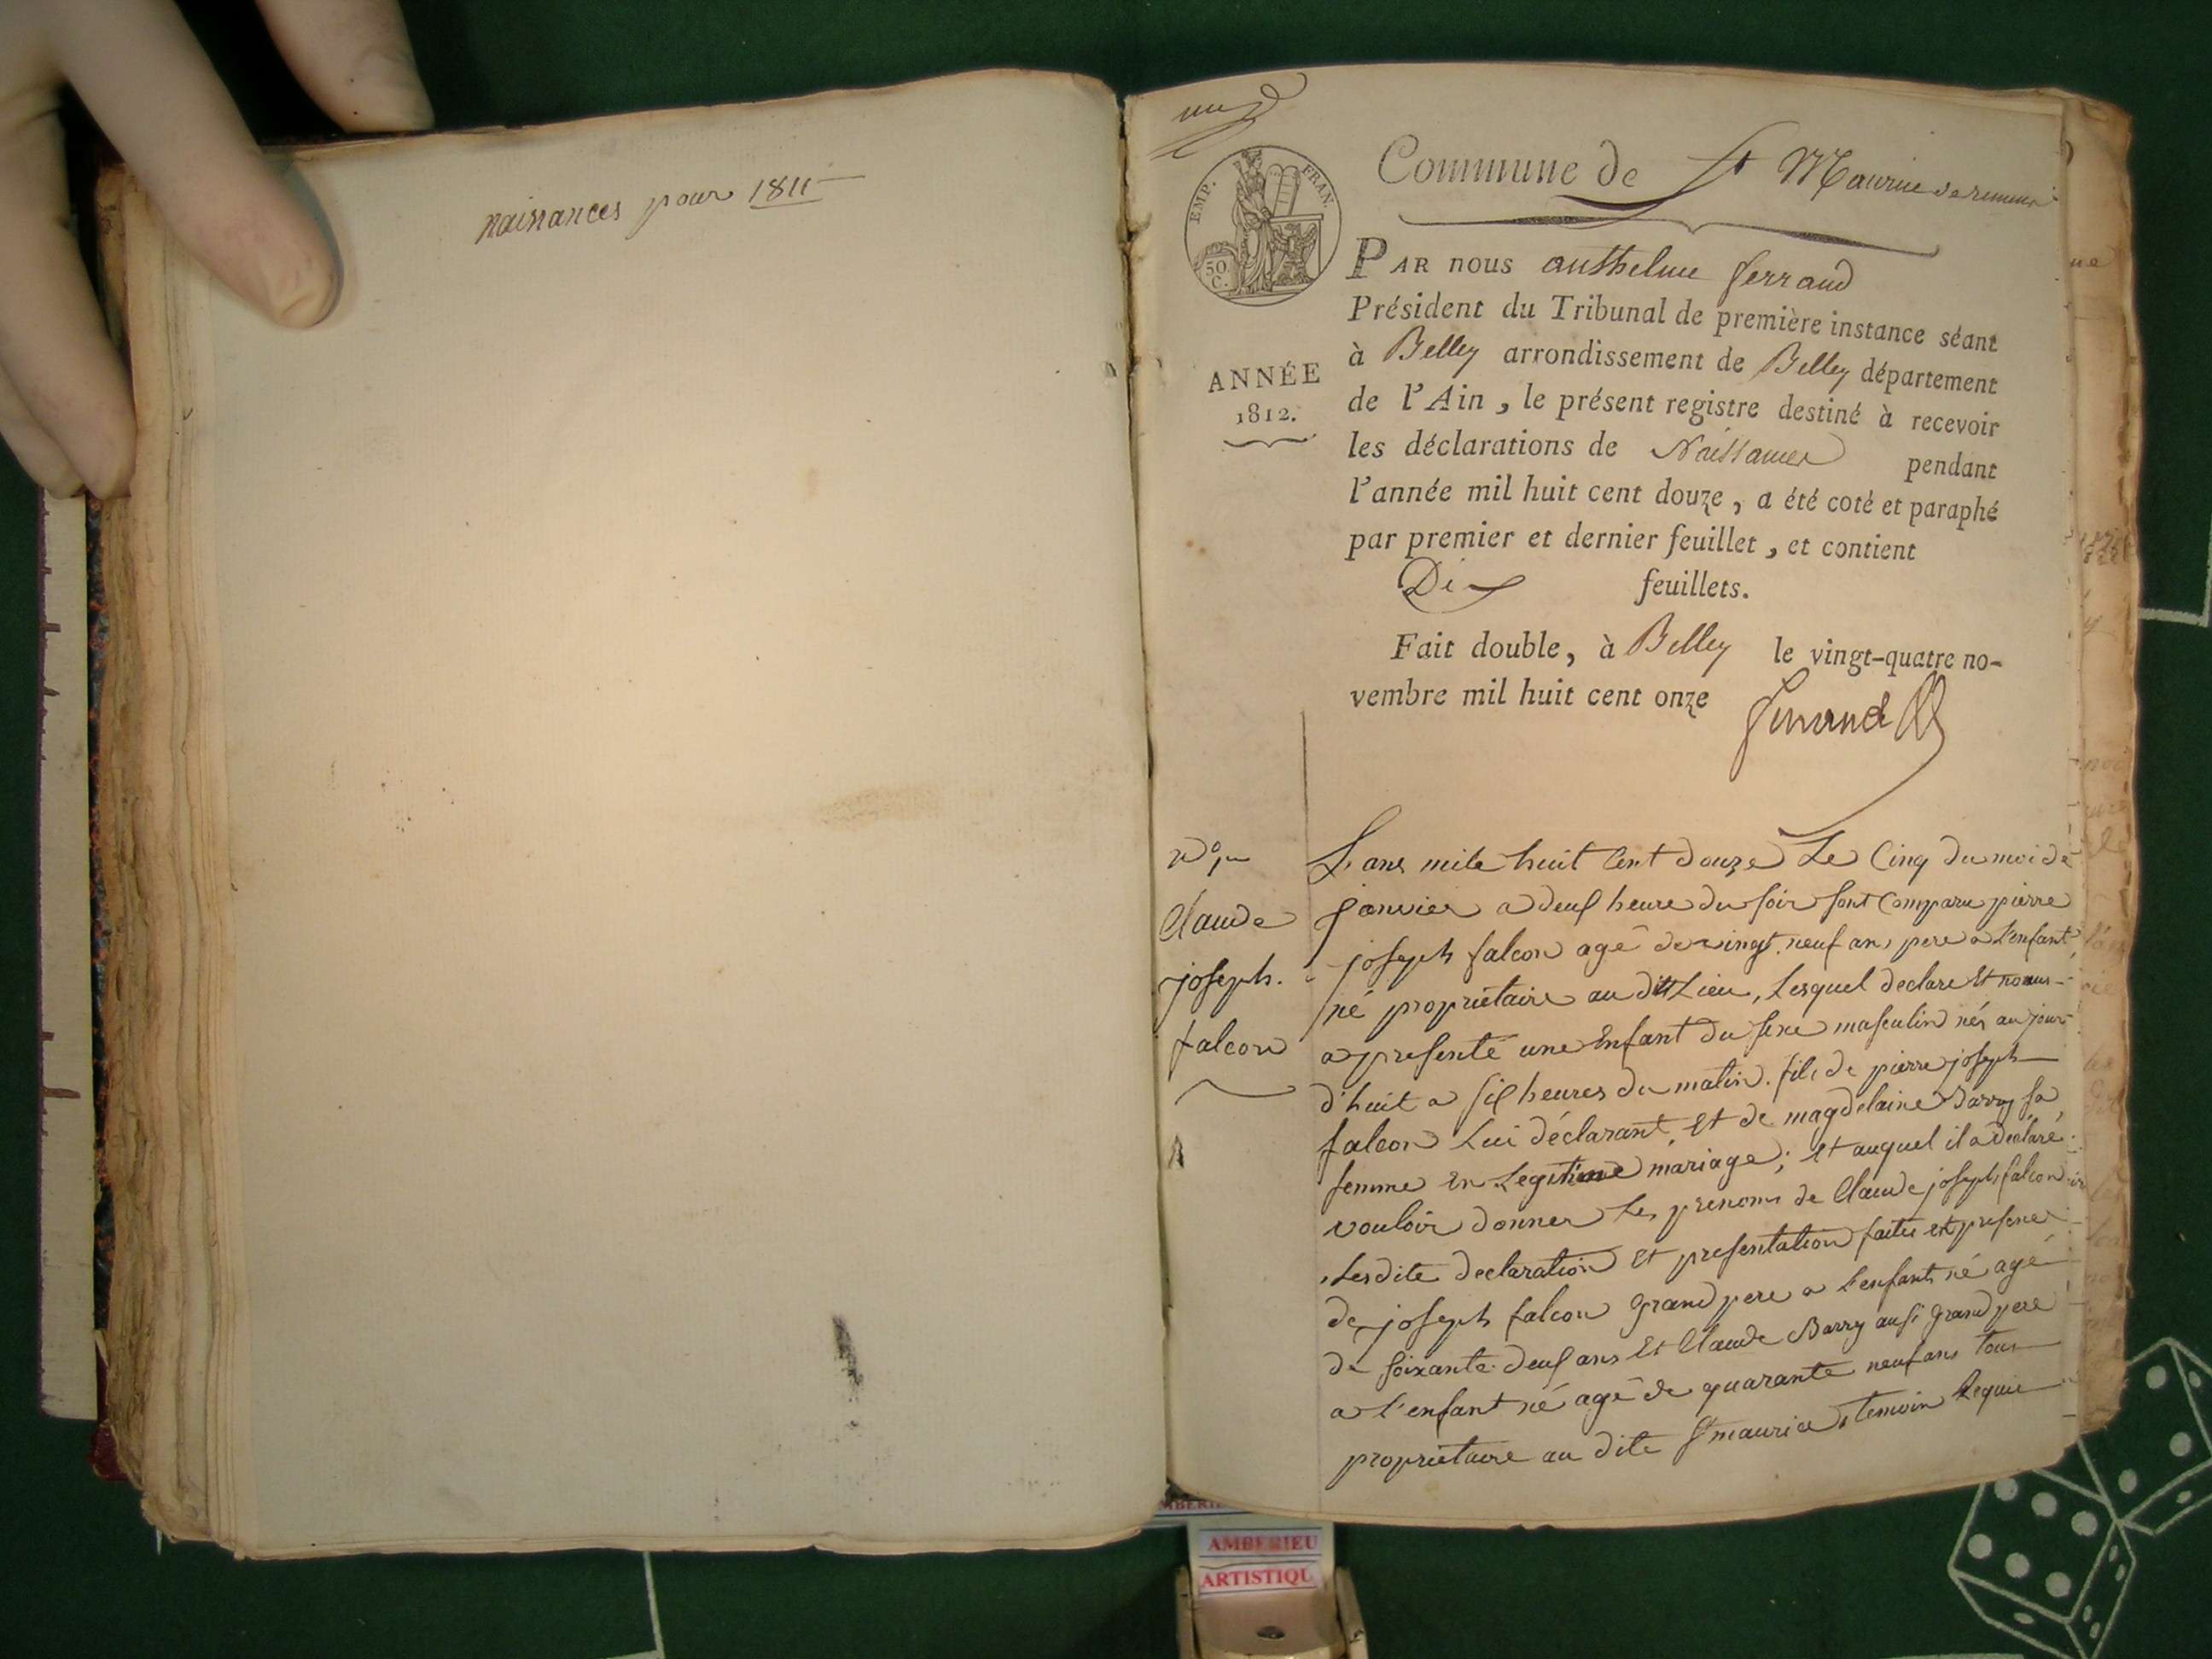 naissances pour 1811
EMP. FRAN.
50 C.
Commune de St Maurice de remens
PAR nous anthelme ferrand
Président du Tribunal de première instance séant
à Belley arrondissement de Belley département
de l'Ain, le présent registre destiné à recevoir
les déclarations de Naissances pendant
l'année mil huit cent douze, a été coté et paraphé
par premier et dernier feuillet, et contient
Dix feuillets.
Fait double, à Belley le vingt-quatre no-
vembre mil huit cent onze
ferrand
ANNÉE
1812.
Claude
joseph.
falcon
L'ans mile huit Cent douze Le Cinq du moi de
janvier a deux heure du soir sont Comparu pierre
joseph falcon agé de vingt neuf ans pere a L'enfant
né propriétaire au dit Lieu, Lesquel declare Et nous
a presenté une Enfant du sexe masculin nés au jour
d'huit a six heures du matin. fils de pierre joseph
falcon Lui déclarant, Et de magdelaine Barry sa
femme en Legitime mariage; Et auquel il a declaré
vouloir donner Les prenoms de Claude joseph falcon
Lesdite declaration Et presentation faites en presence
de joseph falcon grand pere a L'enfant né agé
de soixante deux ans Et Claude Barry ausi grand pere
a L'enfant né agé de quarante neuf ans tous
propriétaire au dite St maurice, temoin Lequie
AMBERIEU
ARTISTIQU